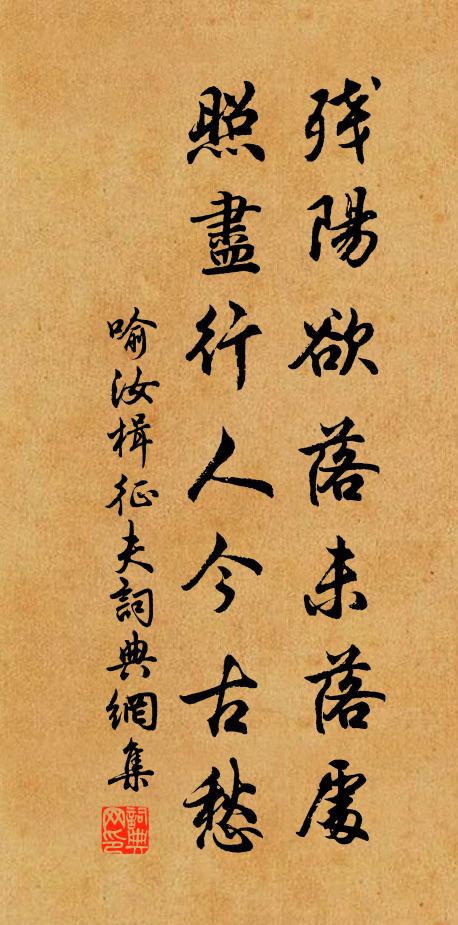 殘陽欲落未落處
照盡行人今古愁
喻汝楫征夫詞典網集
詞典網印